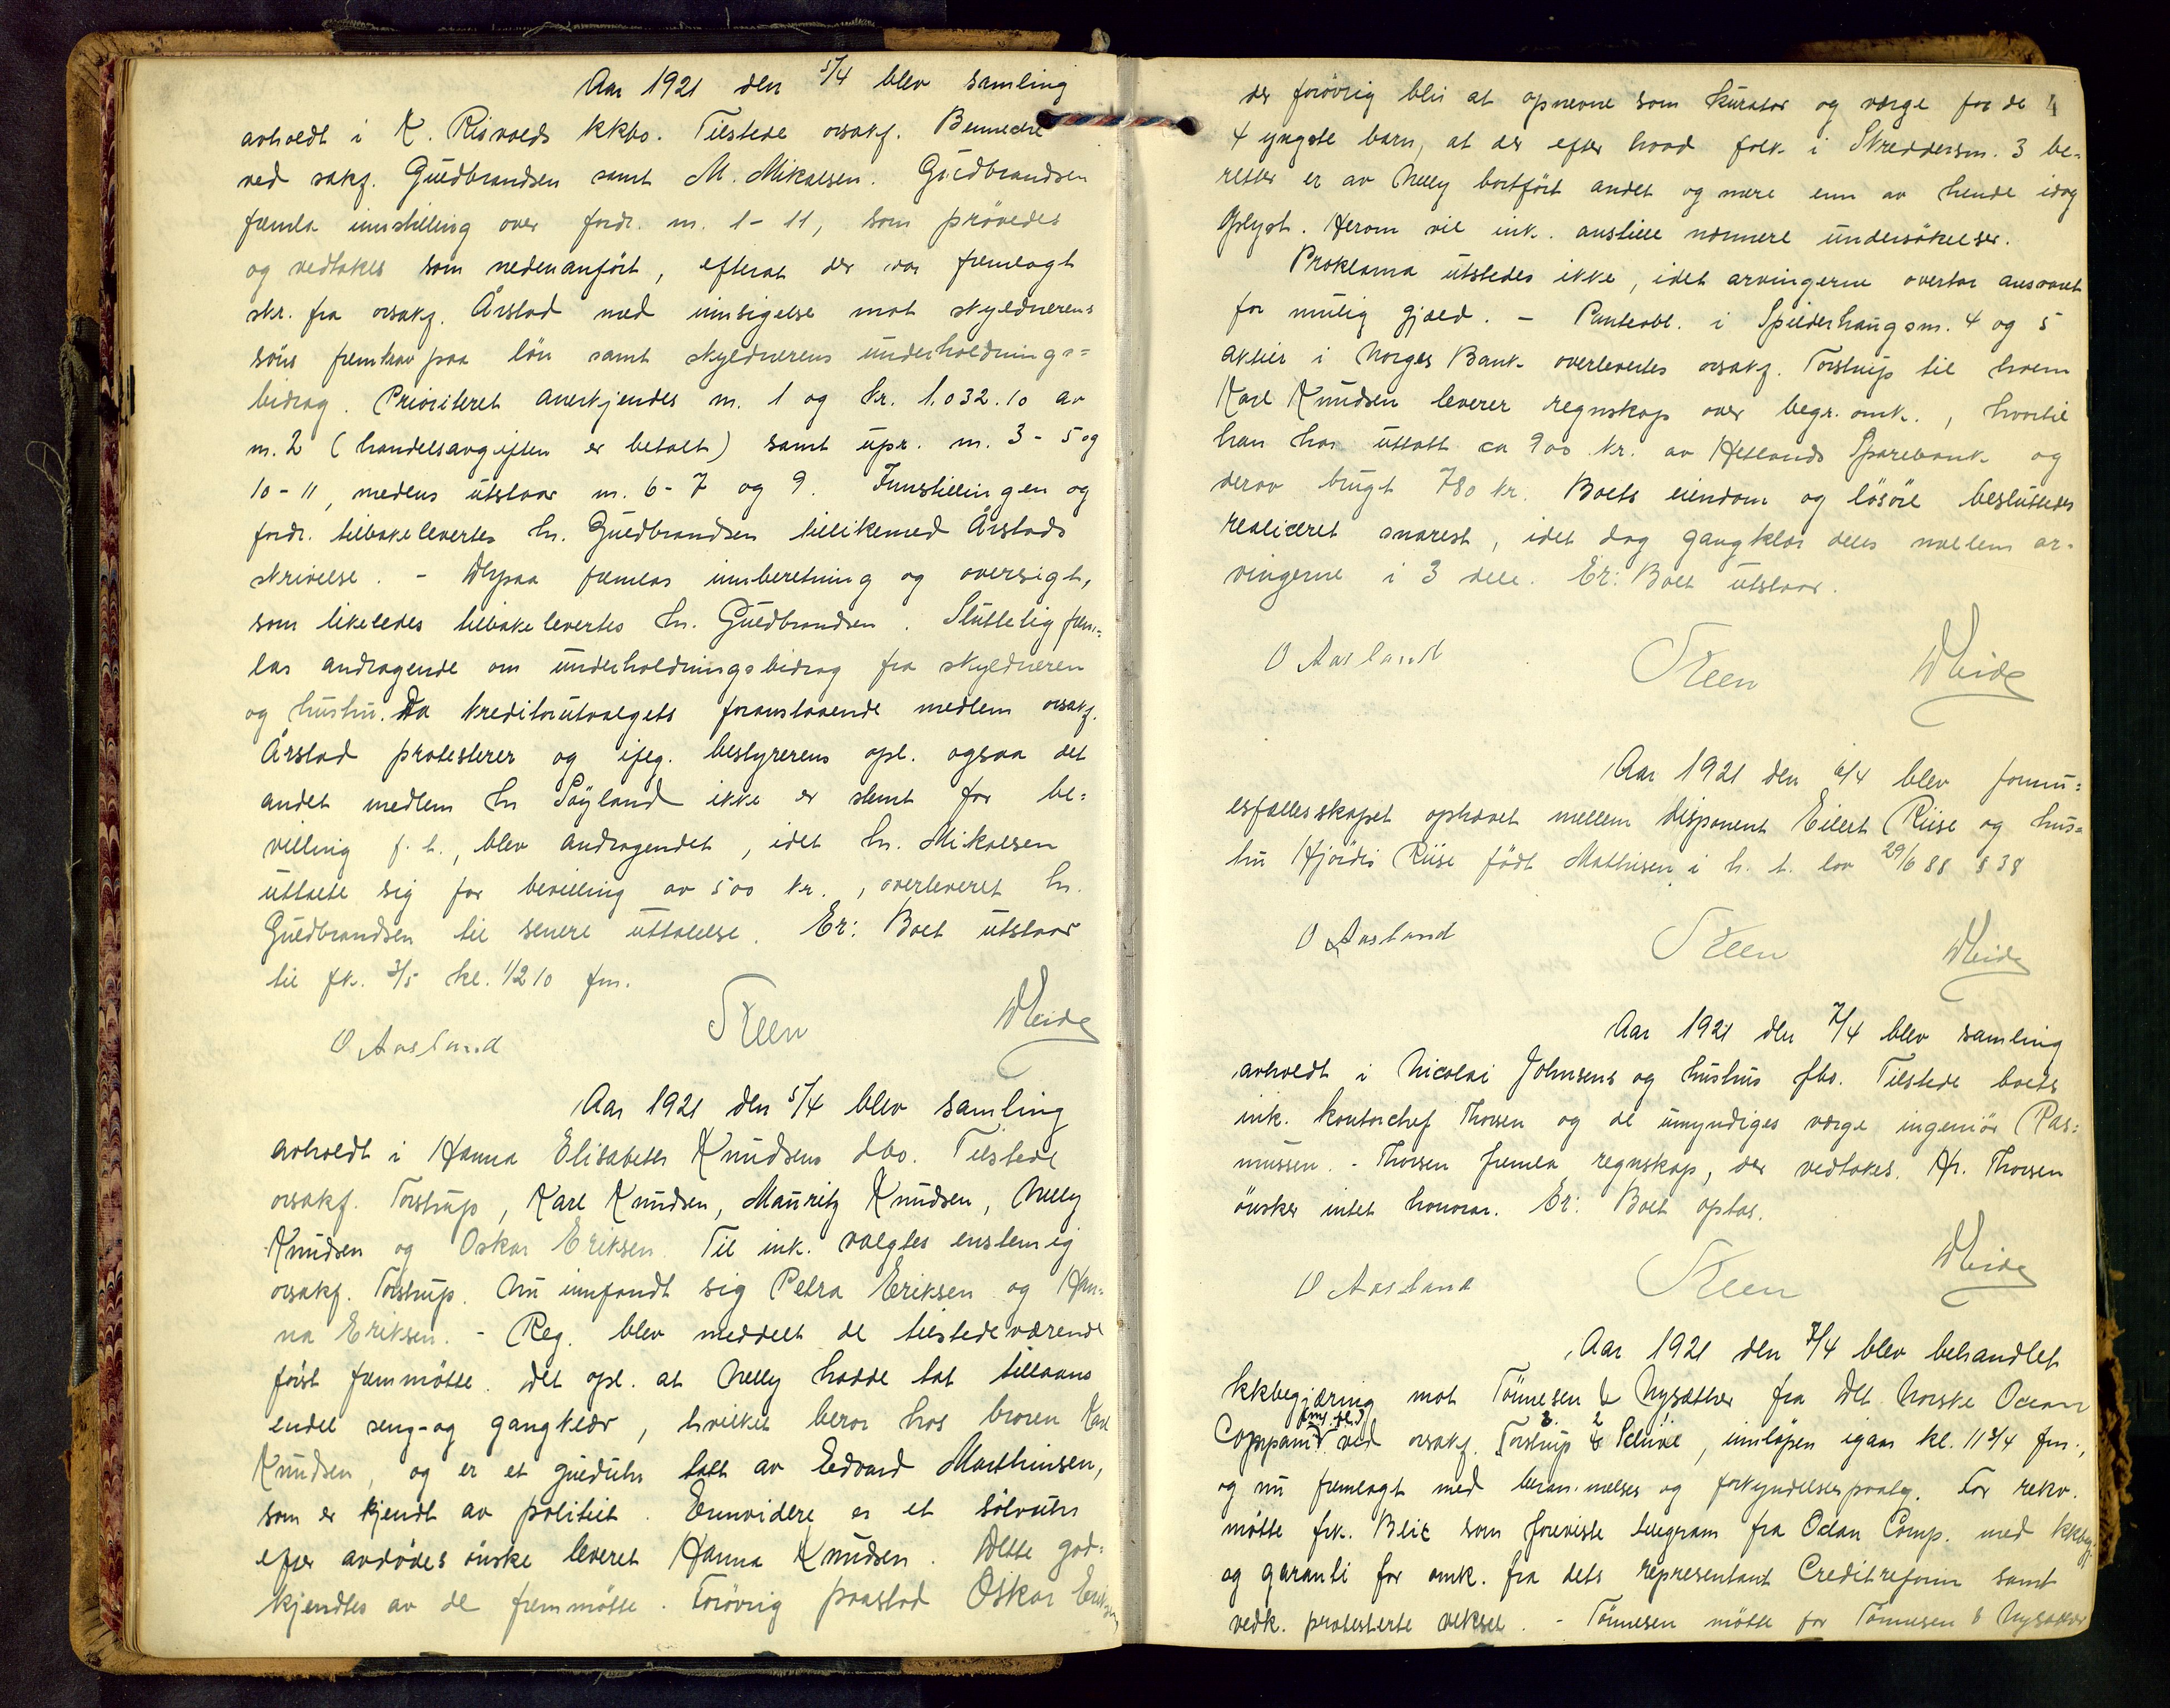 Aar 1921 den 5/4 blev samling
avholdt i K. Risvolds kkbo. Tilstede orsakf. Benneche
ved sakf. Gudbrandsen samt M. Mikalsen. Gudbrandsen
fremla innstilling over fordr. nr. 1-11, som prövedes
og vedtokes som nedenanfört, efterat der var fremlagt
skr. fra orsakf. Årstad med innsigelse mot skyldnerens
söns fremkrav paa lön samt skyldnerens underholdnings=
bidrag. Prioriteret anerkjendes nr. 1 og kr. 1.032.10 av
nr. 2 (handelsavgiften er betalt) samt upr. nr. 3-5 og
10-11, medens utstaar nr. 6-7 og 9. Innstillingen og
fordr. tilbakelevertes hr. Gudbrandsen tillikemed Årstads
skrivelse. - Derpaa fremlas innberetning og oversigt,
som likeledes tilbakelevertes hr. Gudbrandsen. Sluttelig frem=
las andragende om underholdningsbidrag fra skyldneren
og hustru. Da kreditorutvalgets foranstaaende medlem orsakf.
Årstad protesterer og ifölg. bestyrerens opl. ogsaa det
andet medlem hr Söyland ikke er stemt for be=
villing f. t., blev andragendet, idet hr. Mikalsen
uttalte sig for bevilling av 500 kr., overleveret hr.
Gudbrandsen til senere uttalelse. Er: Boet utstaar
til fk. 3/5 kl. 1/2 10 fm.
O Aasland Steen WHeide
Aar 1921 den 5/4 blev samling
avholdt i Hanna Elisabeth Knudsens dbo. Tilstede
orsakf. Torstrup, Karl Knudsen, Mauritz Knudsen, Nelly
Knudsen og Oskar Eriksen. Til ink. valgtes enstemig
orsakf. Torstrup. Nu innfandt sig Petra Eriksen og Han=
na Eriksen. - Reg. blev meddelt de tilstedeværende
först fremmötte. Det opl. at Nelly hadde tat tillaans
endel seng- og gangklær, hvilket beror hos broren Karl
Knudsen, og er et guldur tatt av Edvard Marthinsen,
som er kjendt av politiet. Ennvidere er et sölvur
efter avdödes önske leveret Hanna Knudsen. Dette god=
kjendtes av de fremmötte. Forövrig paastod Oskar Eriksen
der forövrig blir at opnevne som kurator og verge for de 4
4 yngste barn, at der efter hvad folk i Skreddersm. 3 be=
retter er av Nelly bortfört andet og mere enn av hende idag
oplyst. Herom vil ink. anstille nærmere undersökelser.
Proklama utstedes ikke, idet arvingerne overtar ansvaret
for mulig gjæld. - Panteobl. i Spilderhaugsm. 4 og 5
aktier i Norges Bank overlevertes orsakf. Torstrup til hvem
Karl Knudsen leverer regnskap over begr. omk., hvortil
han har uttatt ca 900 kr. av Hetlands Sparebank og
derav brugt 780 kr. Boets eiendom og lösöre besluttedes
realiceret snarest, idet dog gangklær deles mellem ar=
vingerne i 3 dele. Er: Boet utstaar.
O Aasland Steen WHeide
Aar 1921 den 6/4 blev formu=
esfællesskapet ophævet mellem disponent Eilert Riise og hus=
tru Hjördis Riise födt Mathisen i h. t. lov 29/6 88 § 38
O Aasland Steen WHeide
Aar 1921 den 7/4 blev samling
avholdt i Nicolai Johnsens og hustrus fbo. Tilstede boets
ink. kontorchef Thorsen og de umyndiges verge ingeniör Ras=
mussen. - Thorsen fremla regnskap, der vedtokes. Hr. Thorsen
önsker intet honorar. Er: Boet optas.
O Aasland Steen WHeide
Aar 1921 den 7/4 blev behandlet
kkbegjæring mot Tönnesen & Nysæther fra Det Norske Ocean
Compani ved orsakf. Torstrup & Schivel, innlöpen igaar kl. 11 3/4 fm.,
og nu fremlagt med beram.melses og forkyndelsespaateg. For rekv.
mötte frk. Blix som foreviste telegram fra Ocean Comp. med kkbegj.
og garanti for omk. fra dets representant Creditreform samt
vedk. protesterte veksel. - Tönnesen mötte for Tönnesen & Nysæther